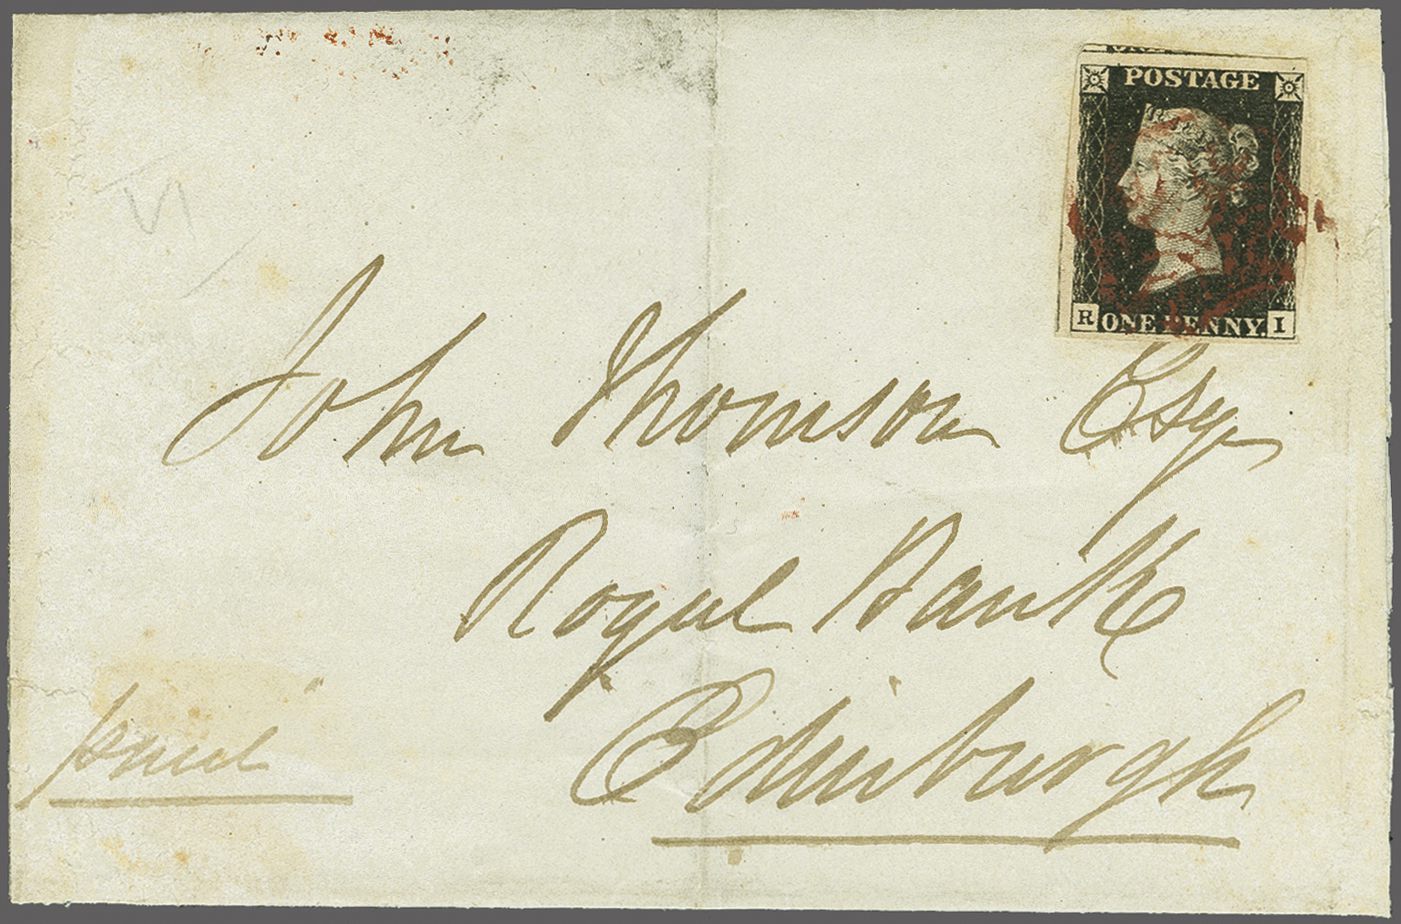 POSTAGE
R ONE PENNY. I
John Thomson Esqr
Royal Bank
Edinburgh
paid